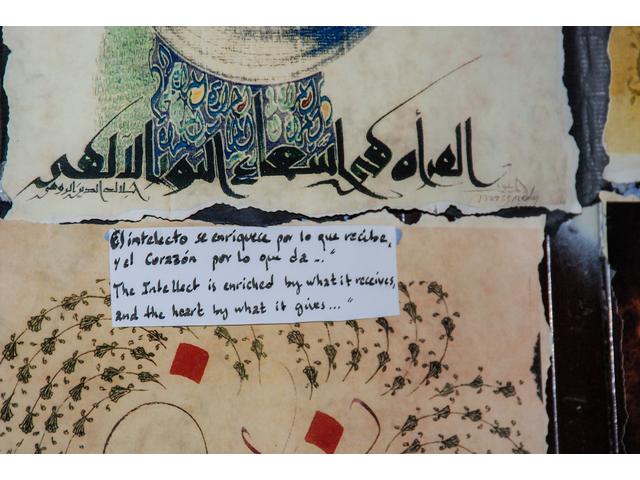 المرأة هي إشعاع النور الإلهي
جلال الدين الرومي
El intelecto se enriquece por lo que recibe,
y el Corazón por lo que da..."
The Intellect is enriched by what it receives,
and the heart by what it gives..."